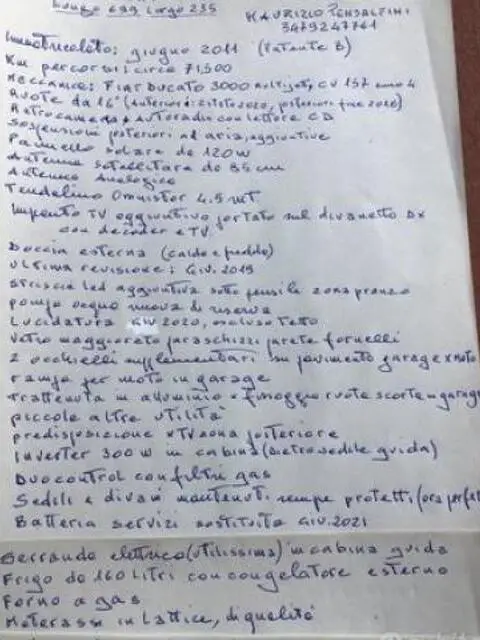 Lungo 699 Largo 235
MAURIZIO
Immatricolato: giugno 2011 (Patente B)
Km percorsi: circa 71,500
Meccanica: FIAT DUCATO 3000 Multijet, CV 157 euro 4
Ruote da 16" (Anteriori: 2020, posteriori fine 2020)
Retrocamera + Autoradio con lettore CD
Sospensioni posteriori ad aria, aggiuntive
Pannello solare da 120 W
Antenna satellitare da 85 cm
Antenna Analogica
Tendalino Omnistor 4.5 mT
Impianto TV aggiuntivo portato sul divanetto DX
con decoder e TV.
Doccia esterna (calda e fredda)
Ultima revisione: GIU. 2019
striscia led aggiuntiva sotto pensile zona pranzo
pompa acqua nuova di riserva
Lucidatura GIU 2020, escluso Tetto
Vetro maggiorato paraschizzi parete fornelli
2 occhielli supplementari su pavimento garage x moto
rampa per moto in garage
trattenuta in alluminio x fissaggio ruote scorta in garage
piccole altre utilità
predisposizione x TV zona posteriore
Inverter 300 W in cabina (dietro sedile guida)
Duocontrol con filtri gas
Sedili e divani mantenuti sempre protetti
Batteria servizi sostituita GIU. 2021
Serranda elettrica (utilissima) in cabina guida
Frigo da 160 Litri con congelatore esterno
Forno a gas
Materassi in Lattice, di qualità